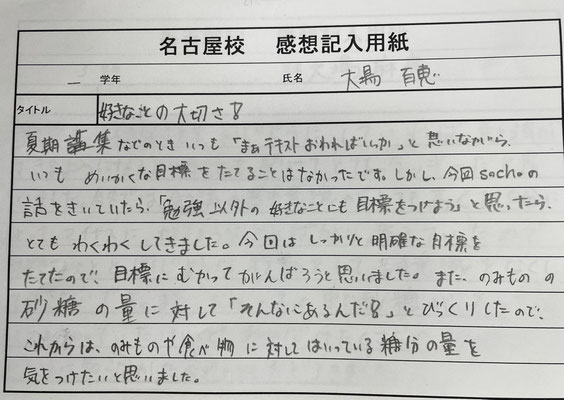 名古屋校 感想記入用紙
一 学年 氏名 大場 百恵
タイトル 好きなことの大切さ!
夏期講集などのとき いつも「まぁテキストおわればいっか」と思いながら、
いつも めいかくな目標をたてることはなかったです。しかし、今回sachoの
話をきいていたら、「勉強以外の好きなことにも目標をつけよう」と思ったら、
とても わくわくしてきました。今回は しっかりと明確な目標を
たてたので、目標にむかってがんばろうと思いました。また、のみものの
砂糖の量に対して「そんなにあるんだ!」とびっくりしたので、
これからは、のみものや食べ物に対してはいっている糖分の量を
気をつけたいと思いました。